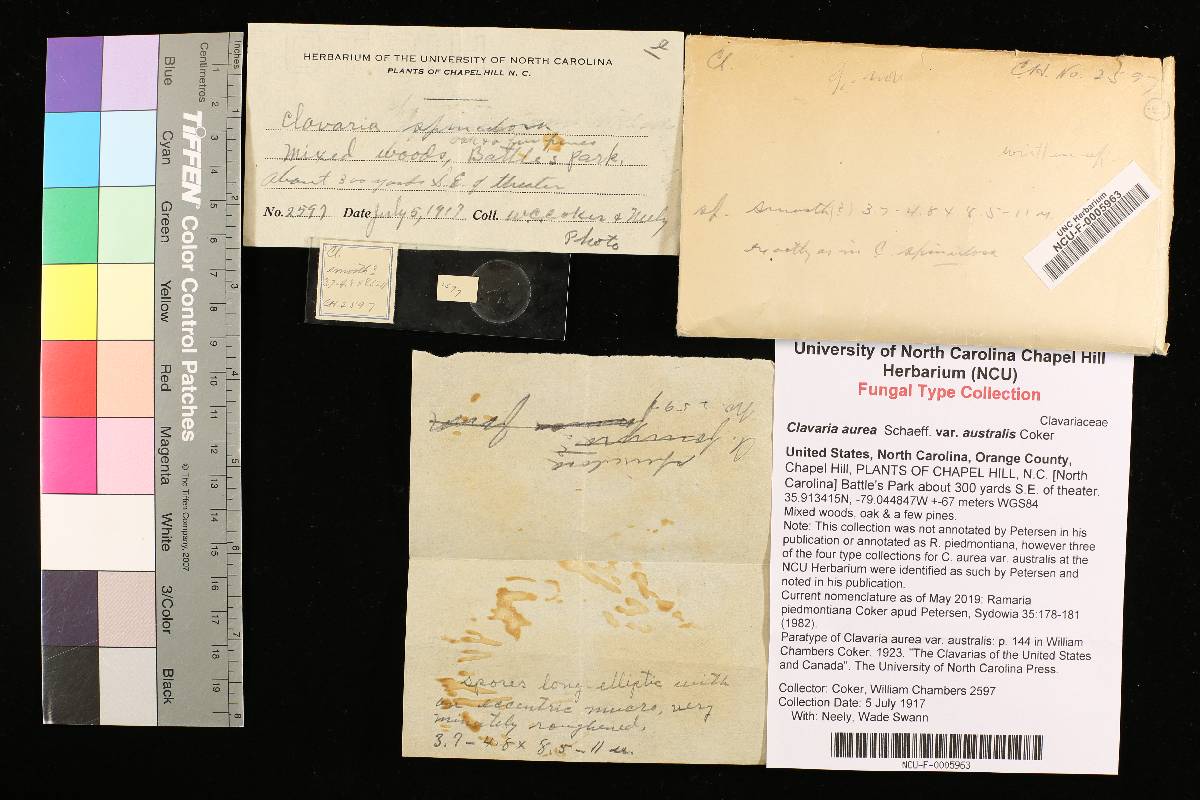 Inches
Centimetres
TIFFEN Color Control Patches
© The Tiffen Company, 2007
Blue
Cyan
Green
Yellow
Red
Magenta
White
3/Color
Black
HERBARIUM OF THE UNIVERSITY OF NORTH CAROLINA
PLANTS OF CHAPEL HILL N. C.
Clavaria spinulosa
oak & a few pines
Mixed woods, Battle's Park.
About 300 yards S.E. of theater
No. 2597 Date July 5, 1917 Coll. W.C. Coker & Neely
Photo
Cl.
smooth?
CH 2597
Cl.
C.H. No. 2597
written up
sp. smooth(?) 3.7-4.8 X 8.5-11 µ
exactly as in C. spinulosa
UNC Herbarium
NCU-F-0005963
No. 2597
spinulosa
spores long-elliptic with
an eccentric mucro, very
minutely roughened,
3.7-4.8 X 8.5-11 µ.
University of North Carolina Chapel Hill
Herbarium (NCU)
Fungal Type Collection
Clavariaceae
Clavaria aurea Schaeff. var. australis Coker
United States, North Carolina, Orange County,
Chapel Hill, PLANTS OF CHAPEL HILL, N.C. [North
Carolina] Battle's Park about 300 yards S.E. of theater.
35.913415N, -79.044847W +-67 meters WGS84
Mixed woods, oak & a few pines.
Note: This collection was not annotated by Petersen in his
publication or annotated as R. piedmontiana, however three
of the four type collections for C. aurea var. australis at the
NCU Herbarium were identified as such by Petersen and
noted in his publication.
Current nomenclature as of May 2019: Ramaria
piedmontiana Coker apud Petersen, Sydowia 35:178-181
(1982)
Paratype of Clavaria aurea var. australis: p. 144 in William
Chambers Coker. 1923. "The Clavarias of the United States
and Canada". The University of North Carolina Press.
Collector: Coker, William Chambers 2597
Collection Date: 5 July 1917
With: Neely, Wade Swann
NCU-F-0005963